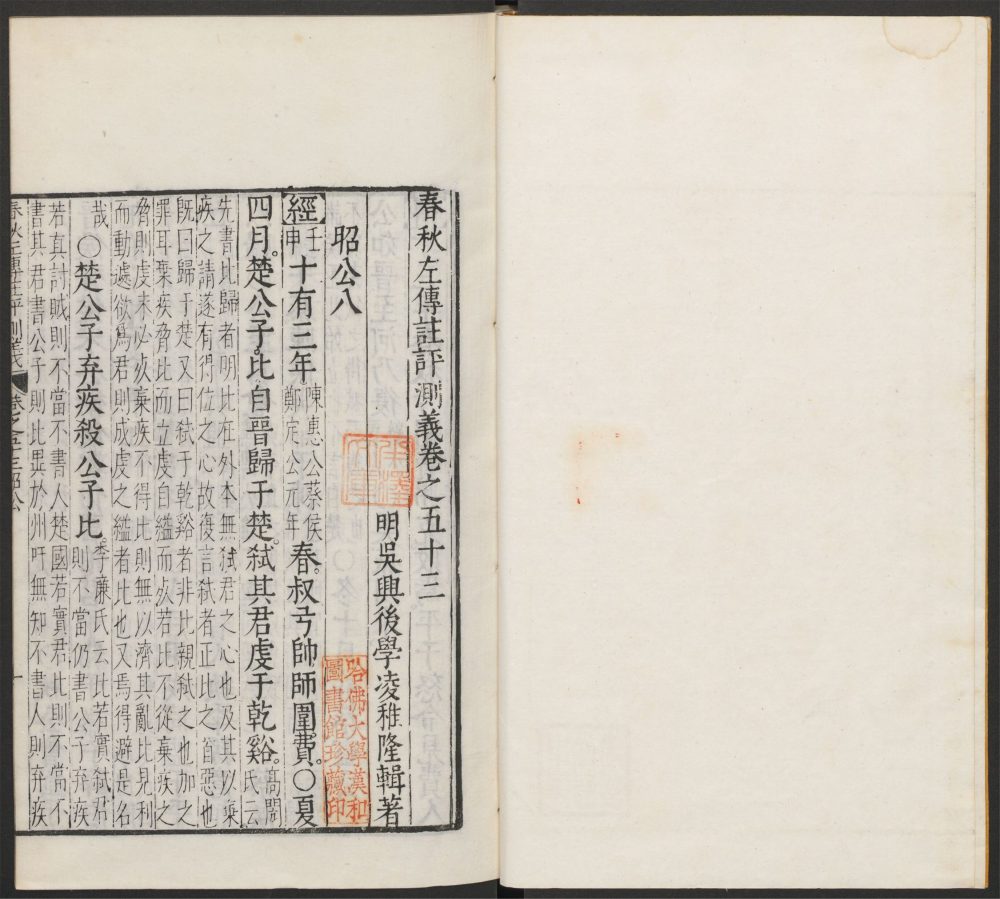 春秋左傳註評測義卷之五十三
明吳興後學凌稚隆輯著
昭公八
哈佛大學漢和
圖書館珍藏印
經壬申十有三年陳惠公蔡侯鄭定公元年春叔弓帥師圍費○夏
四月楚公子比自晉歸于楚弑其君虔于乾谿高閌氏云
先書比歸者明比在外本無弑君之心也及其以棄
疾之請遂有得位之心故復言弑者正比之首惡也
既曰歸于楚又曰弑于乾谿者非比親弑之也加之
罪耳棄疾脅比而立虔自縊而死若比不從棄疾之
脅則虔未必死棄疾不得比則無以濟其亂比見利
而動遽欲爲君則成虔之縊者比也又焉得避是名
哉○楚公子弃疾殺公子比李廉氏云比若實弑君則不當仍書公子弃疾
若真討賊則不當不書人楚國若實君比則不當不
書其君書公子則比異於州吁無知不書人則弃疾
春秋左傳註評測義 卷之五十三昭公 一